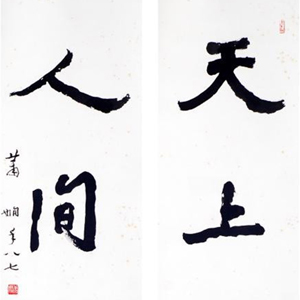 天上
人间
萧娴年八七